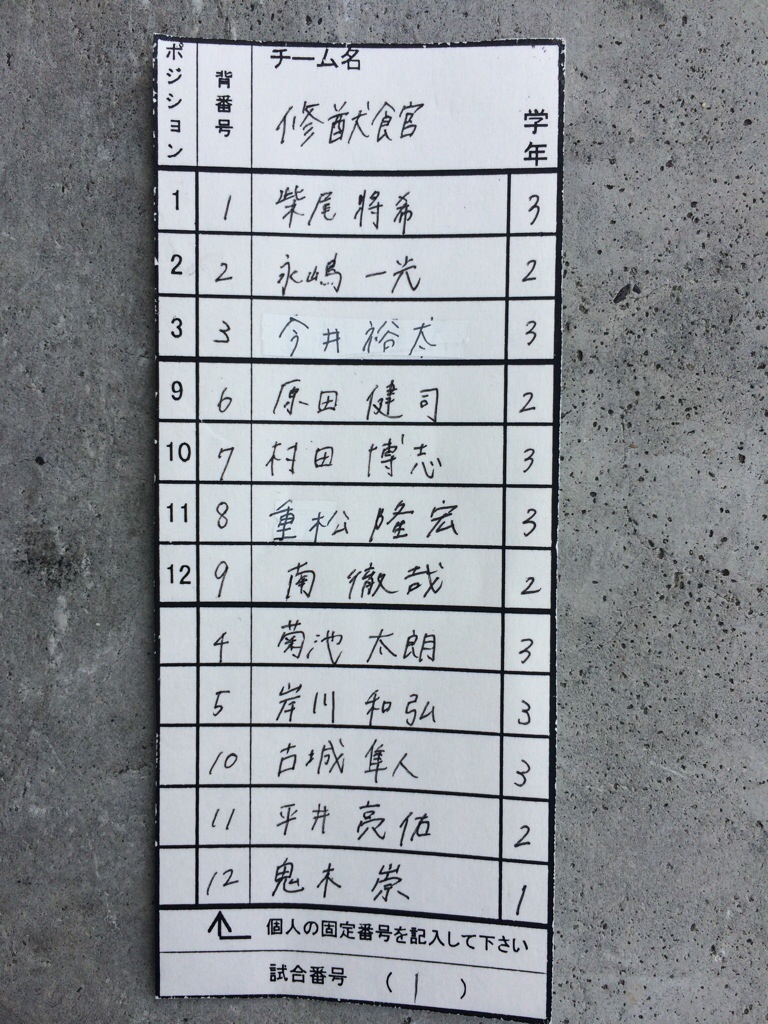 ポジション 背番号 チーム名 学年
修猷館
1 1 柴尾 将希 3
2 2 永嶋 一光 2
3 3 今井 裕太 3
9 6 原田 健司 2
10 7 村田 博志 3
11 8 重松 隆宏 3
12 9 南 徹哉 2
4 菊池 太朗 3
5 岸川 和弘 3
10 古城 隼人 3
11 平井 亮佑 2
12 鬼木 崇 1
個人の固定番号を記入して下さい
試合番号 (1)